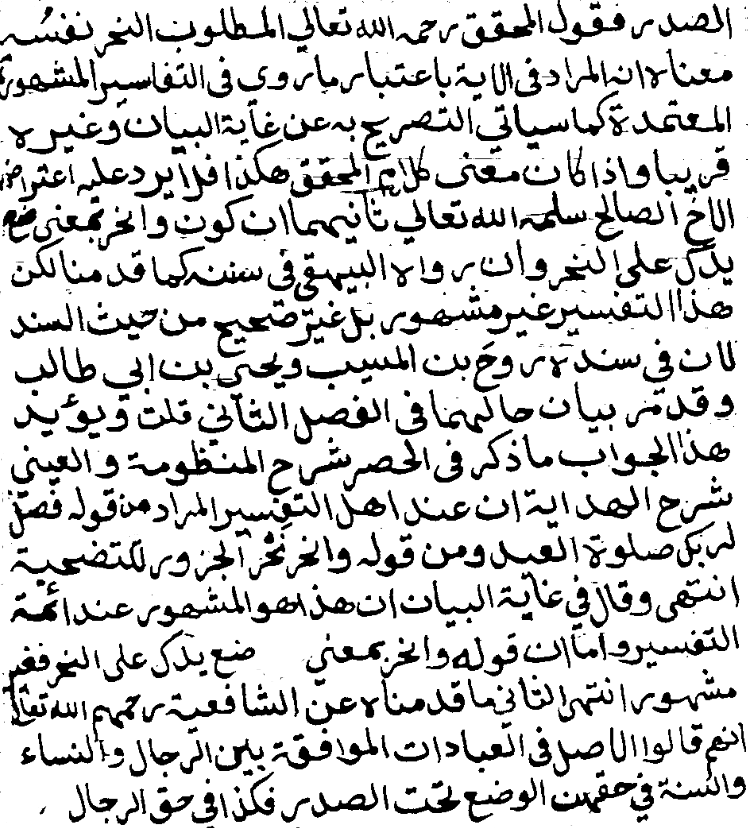 الصدر فقول المحقق رحمه الله تعالي المطلوب النحر نفسه
معناه انه المراد في الاية باعتبار ما روى في التفاسير المشهورة
المعتمدة كما سياتي التصريح به عن غاية البيان وغيره
قريبا واذا كان معنى كلام المحقق هكذا فلا يرد عليه اعتراض
الاخ الصالح سلمه الله تعالي ثانيهما ان كون وانحر بمعنى ضع
يدك على النحر وان رواه البيهقي في سننه كما قدمنا لكن
هذا التفسير غير مشهور بل غير صحيح من حيث السند
لان في سنده روح بن المسيب ويحيى بن ابي طالب
وقد مر بيان حالهما في الفصل الثاني قلت ويؤيد
هذا الجواب ما ذكر في الحصر شرح المنظومة والعيني
شرح الهداية ان عند اهل التفسير المراد من قوله فصل
لربك صلوة العيد ومن قوله وانحر نحر الجزور للتضحية
انتهى وقال في غاية البيان ان هذا هو المشهور عند ائمة
التفسير واما ان قوله وانحر بمعنى ضع يدك على النحر فغير
مشهور انتهى الثاني ما قدمناه عن الشافعية رحمهم الله تعالى
انهم قالوا الاصل في العبادات الموافقة بين الرجال والنساء
والسنة في حقهن الوضع تحت الصدر فكذا في حق الرجال